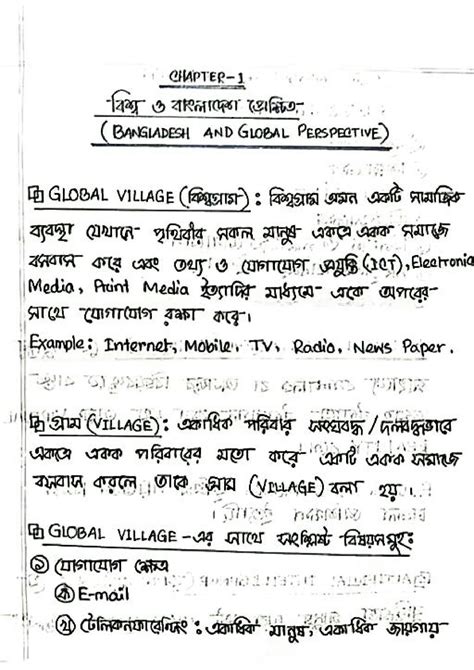 CHAPTER-1
বিশ্ব ও বাংলাদেশ প্রেক্ষিত
(BANGLADESH AND GLOBAL PERSPECTIVE)
GLOBAL VILLAGE (বিশ্বগ্রাম) : বিশ্বগ্রাম এমন একটি সামাজিক
ব্যবস্থা যেখানে পৃথিবীর সকল মানুষ একত্রে একক সমাজে
বসবাস করে এবং তথ্য ও যোগাযোগ প্রযুক্তি (ICT), Electronic
Media, Print Media ইত্যাদির মাধ্যমে একে অপরের
সাথে যোগাযোগ রক্ষা করে।
Example: Internet, Mobile, TV, Radio, News Paper.
গ্রাম (VILLAGE): একাধিক পরিবার সংঘবদ্ধ / দলবদ্ধভাবে
একত্রে একক পরিবারের মতো করে একটি একক সমাজে
বসবাস করলে তাকে গ্রাম (VILLAGE) বলা হয়।
GLOBAL VILLAGE -এর সাথে সংশ্লিষ্ট বিষয়সমূহঃ
১ যোগাযোগ ক্ষেত্র
ক E-mail
খ টেলিকনফারেন্সিং : একাধিক মানুষ, একাধিক জায়গায়